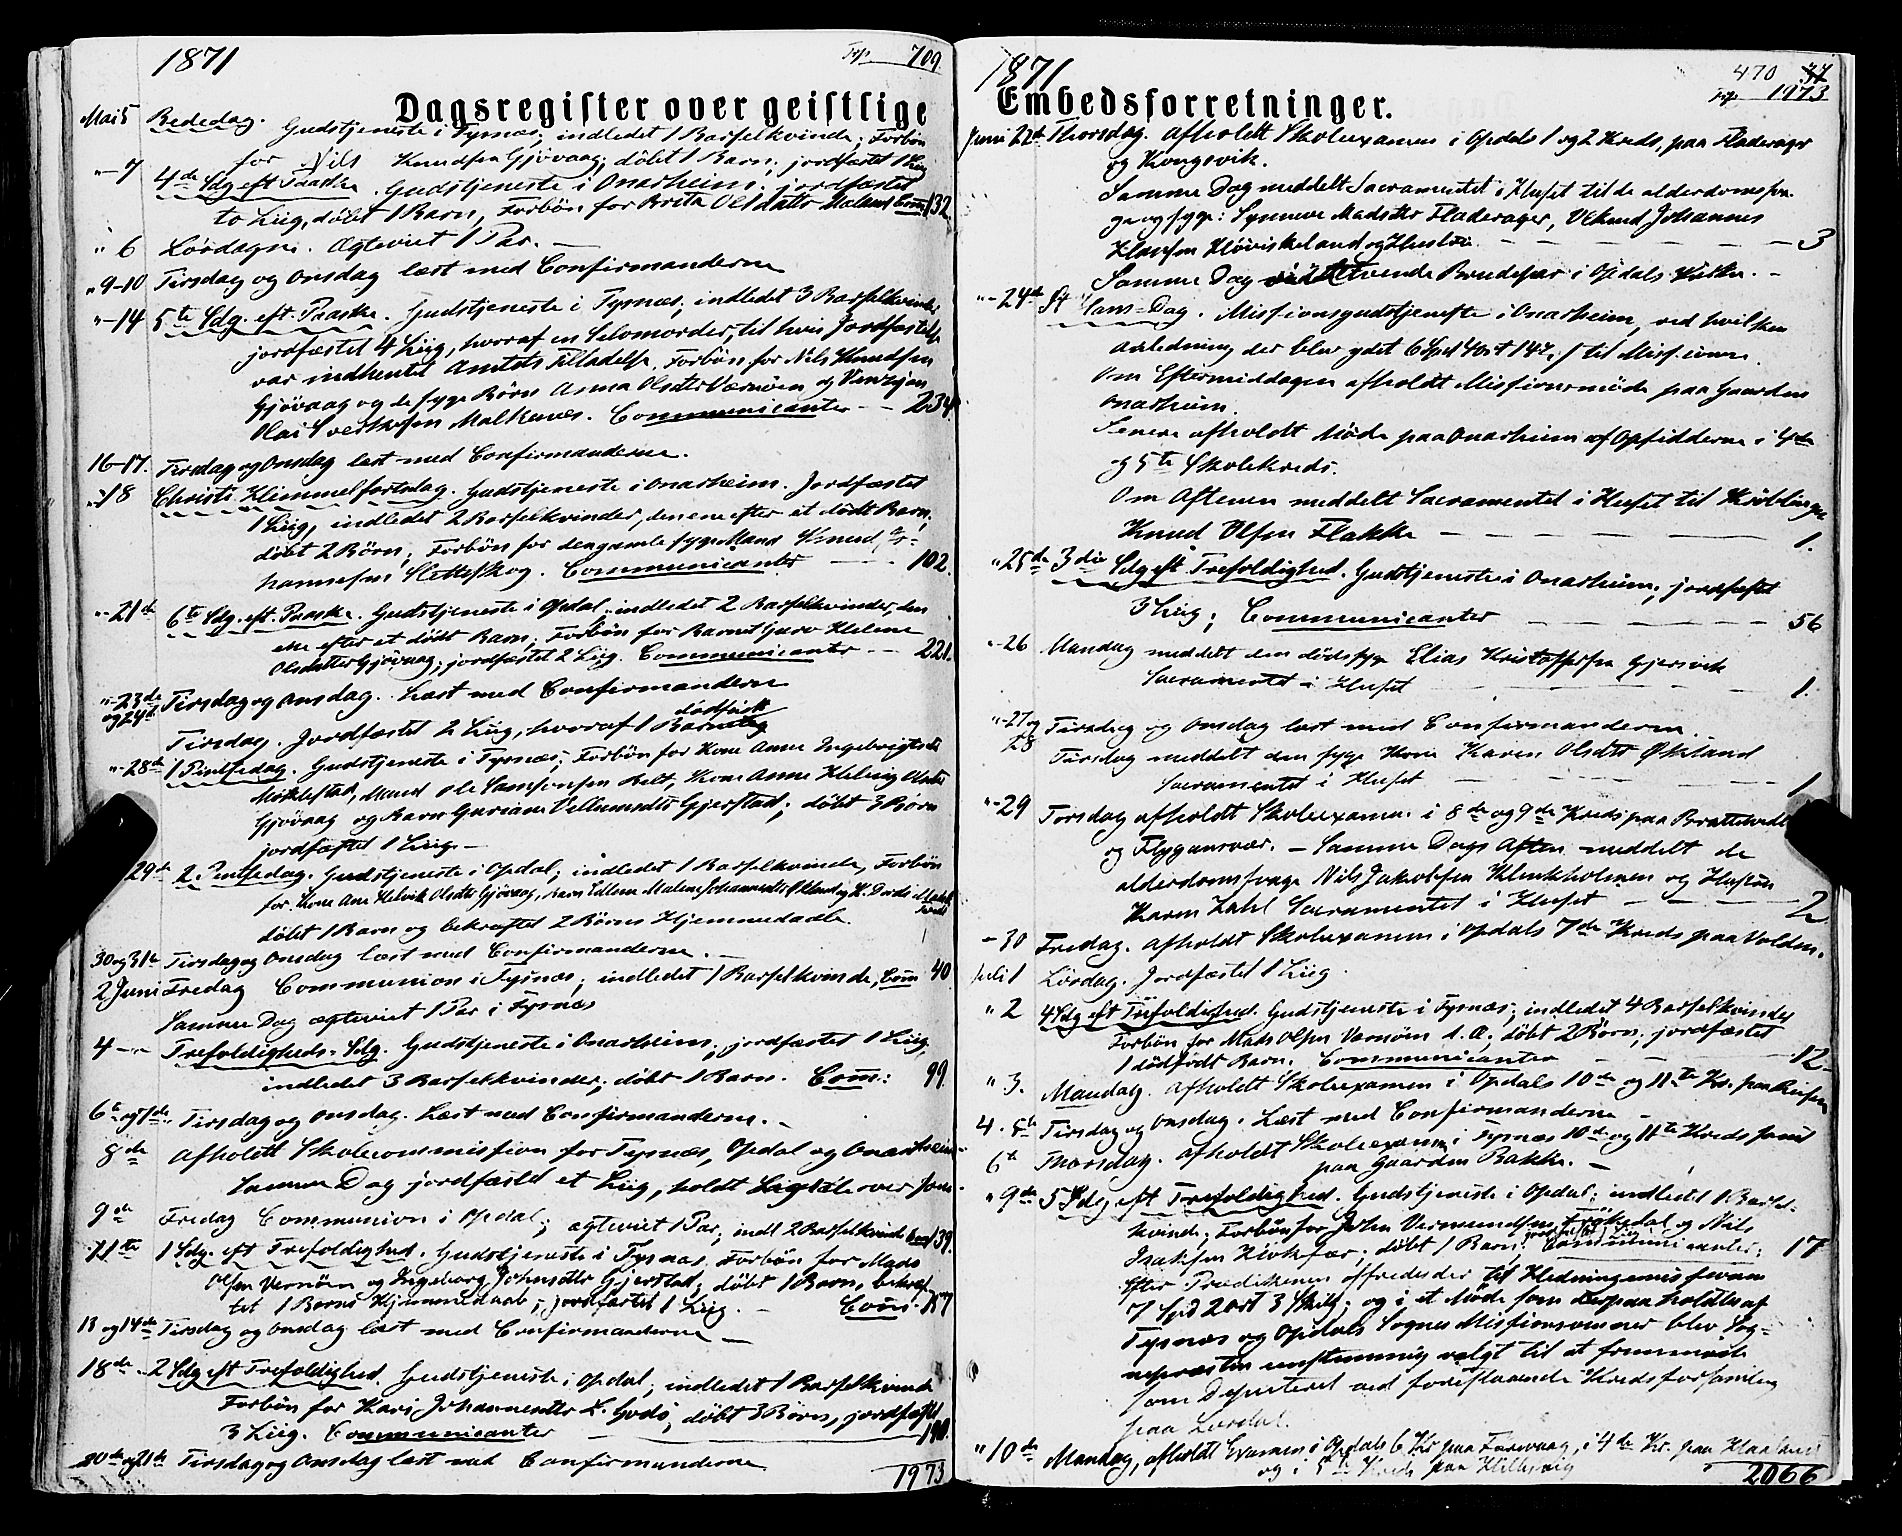 1871
709
Dagsregister over geistlige
Mai 5 Bededag. Gudstjeneste i Tysnæs; indledet 1 Barselkvinde; Forbøn
for Nils Knudsen Gjövaag; döbt 1 Barn; jordfæstet 1 Liig
"-7 4de Sdg. eft. Paaske. Gudstjeneste i Onarheim. jordfæstet
to Liig, döbt 1 Barn, Forbön for Brita Olsdatter Com: 132
" 6 Lördagen. Ægteviet 1 Par. —
"9-10 Tirsdag og Onsdag læst med Confirmanderne
"-14 5te Sdg. eft. Paaske. Gudstjeneste i Tysnæs; indledet 3 Barselkvinder
jordfæstet 4 Liig, hvoraf en Selvmorder, til hvis Jordfæstelse
var indhentet Amtets Tilladelse. Forbön for Nils Knudsen
Gjövaag og de syge Börn Anna Olsdatter Værnöen og
Olai Malkenes. Communicanter - - 234.
16-17. Tirsdag og Onsdag læst med Confirmanderne.
"-18 Christi Himmelfartsdag. Gudstjeneste i Onarheim. Jordfæstet
1 Liig, indledet 2 Barselkvinder, den ene efter et dödt Barn,
döbt 2 Börn; Forbön for den gamle syge Mand Knud Jo-
hannesen Sletteskog. Communicanter - - 102.
"-21de 6te Sdg. eft. Paaske. Gudstjeneste i Opdal; indledet 2 Barselkvinder, den
ene efter et dödt Barn; Forbön for Barnet Helene
Olsdatter Gjövaag; jordfæstet 2 Liig. Communicanter - - 221.
"-23de og 24de Tirsdag og Onsdag. Læst med Confirmanderne
Tirsdag. Jordfæstet 2 Liig, hvoraf 1 dödfödt
"-28de 1 Pintsedag. Gudstjeneste i Tysnæs; Forbön for Kone Anne Ingebrigtsdtr
Mand Ole Samsonsen Kone Anne Olsdtr
Gjövaag og Barn Gjerstad; döbt 3 Börn
jordfæstet 1 Liig. —
29de 2. Pintsedag. Gudstjeneste i Opdal; indledet 1 Barselkvinde, Forbön
for Kone Ane Olsdtr Gjövaag, Barn Malene Johannesdtr
döbt 1 Barn og bekræftet 2 Börns Hjemmedaab.
30 og 31te Tirsdag og Onsdag læst med Confirmanderne. —
2 Juni Fredag Communion i Tysnæs; indledet 1 Barselkvinde, Com 40
Samme Dag ægteviet 1 Par i Tysnæs
4 -"- Trefoldigheds-Sdg. Gudstjeneste i Onarheim; jordfæstet 1 Liig,
indledet 3 Barselkvinder; döbt 1 Barn. Com: 99.
6te og 7de Tirsdag og Onsdag. Læst med Confirmanderne. —
8de Afholdt Skolecommission for Tysnæs, Opdal og Onarheim
Samme Dag jordfæstet et Liig, holdt Ligtale over
9de Fredag Communion i Opdal; ægteviet 1 Par; indl 2 Barselkvinder Com 139.
11te 1 Sdg. eft Trefoldighed. Gudstjeneste i Tysnæs, Forbön for Mads
Olsen Vernöen og Ingeborg Johnsdtr Gjerstad; döbt 1 Barn, bekræf-
tet 1 Barns Hjemmedaab; jordfæstet 1 Liig. — Com:
13 og 14de Tirsdag og Onsdag læst med Confirmanderne —
18de 2 Sdg eft Trefoldighed. Gudstjeneste i Opdal; indledet 1 Barselkvinde
Forbön for Kari Johannesdtr L. Godö; döbt 3 Börn, jordfæstet
3 Liig. Communicanter
20de og 21de Tirsdag og Onsdag læst med Confirmanderne
1973
1871
470
1973
Embedsforretninger.
Juni 22de Thorsdag. Afholdt Skoleexamen i Opdals 1 og 2 Kreds, paa Fladerager
og Kongsvik.
Samme Dag meddelt Sacramentet i Huset til de alderdomssva-
ge og syge: Synneve Madsdtr Fladerager, Johannes
og Hustru - - - 3
Samme Dag Brudepar i Opdals Kirke. -
"-24de St Hans-Dag. Missionsgudstjeneste i Onarheim, ved hvilken
Anledning der blev ydet 6 Spd 4 Ort 14 s til Missionen.
Om Eftermiddagen afholdt Missionsmöde paa Gaarden
Onarheim.
Senere afholdt Möde paa Onarheim af Opsidderne i 4de
og 5te Skolekreds.
Om Aftenen meddelt Sacramentet i Huset til Kröblingen
Knud Olsen Flakke - - - 1.
"25de 3die Sdg eft Trefoldighed. Gudstjeneste i Onarheim; jordfæstet
3 Liig; Communicanter - - - 56
"-26 Mandag meddelt den dödssyge Elias Kristoffersen Gjersvik
Sacramentet i Huset - - - 1.
"-27 og 28 Tirsdag og Onsdag læst med Confirmanderne.
Tirsdag meddelt den syge Kone Karen Olsdtr Økland
Sacramentet i Huset - - - 1
"-29 Torsdag afholdt Skoleexamen i 8de og 9de Kreds paa
og Flygansvær. — Samme Dags Aften meddelt de
alderdomssvage Nils Jakobsen Klenkholmen og Hustru
Karen Sacramentet i Huset - - - 2
-30 Fredag. Afholdt Skoleexamen i Opdals 7de Kreds paa Volden.
Juli 1 Lördag. Jordfæstet 1 Liig.
" 2 4 Sdg eft Trefoldighed. Gudstjeneste i Tysnæs; indledet 4 Barselkvinder
Forbön for Mads Olsen Vernöen döbt 2 Börn; jordfæstet
1 dödfödt Barn. Communicanter - - - 12
" 3. Mandag. Afholdt Skoleexamen i Opdals 10de og 11te Kr. paa
4. 5te Tirsdag og Onsdag. Læst med Confirmanderne -
6te Thorsdag. Afholdt Skoleexamen i Tysnæs 10de og 11te Kreds
paa Gaarden Bakke. —
" 9de 5 Sdg eft Trefoldighed. Gudstjeneste i Opdal; indledet 1 Barsel-
kvinde; Forbön for John Vermundsen og Nils
Isaksen döbt 1 Barn; jordfæstet 1 Liig Communicanter: 17
Efter Prædikenen offredes der til Hedningemissionen
7 Spd 2 Ort 3 Skill; og i et Möde som derpaa holdtes af
Tysnæs og Opdals Sognes Missionsvenner blev Sog-
nepræsten enstemmig valgt til at fremmöde
som Deputeret ved forestaaende Kredsforsamling
paa Lærdal.
" 10de Mandag, afholdt Examen i Opdals 6 Kr paa i 4de Kr. paa
og i 5te Kreds paa
2066